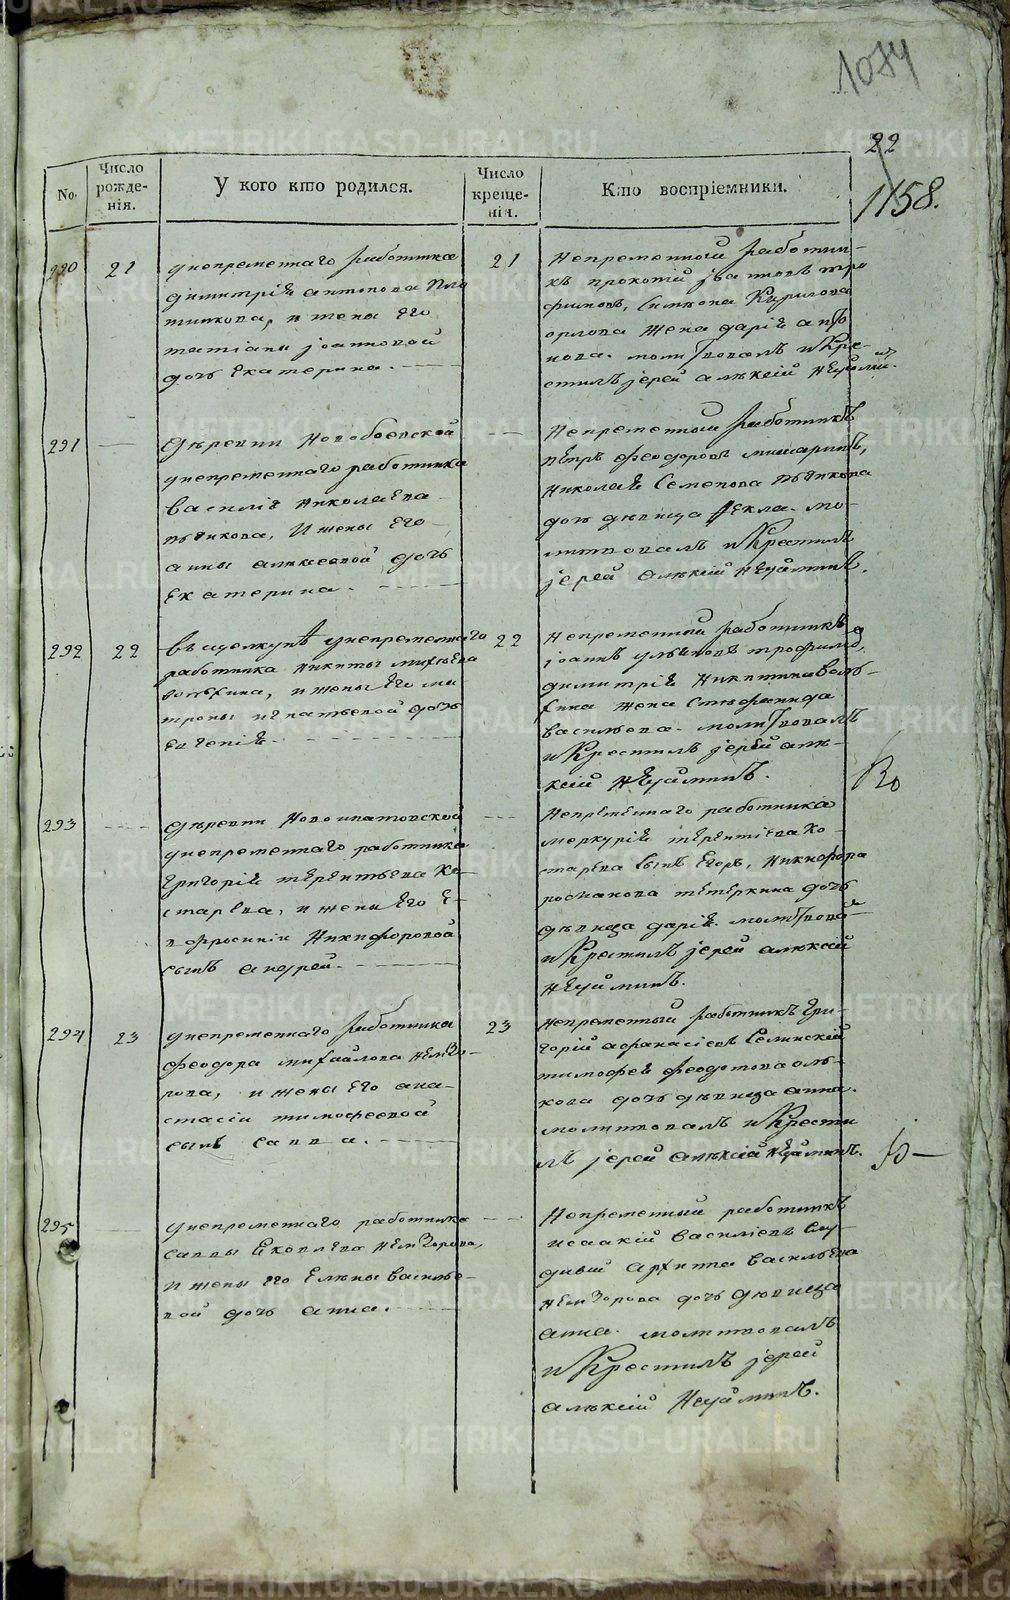 1084
22
1158.
No.
Число рожденія.
У кого кто родился.
Число крещенія.
Кто воспріемники.
290
21
унепременнаго работника
димитрія антонова Пло
тникова, и жены его
татіаны іоанновой
дочь Екатерина.
21
Непременный работни-
къ прокопій
Симеона Кирилова
орлова жена дарія анто
нова. молитвовалъ и Кре-
стилъ іерей алексій Неуйминъ.
291
деревни Новобоевской
унепременнаго работника
василія николаева
пьянкова, И жены его
анны алексеевой дочь
Екатерина.
Непременный работникъ
петръ феодоровъ
Николая Семенова пьянкова
дочь девица Фекла. мо-
литвовалъ и Крестилъ
іерей алексій Неуйминъ.
292
22
въ щелкунѣ унепременнаго
работника никиты михеева
вольхина, и жены его ма
троны игнатьевой дочь
Евгенія.
22
Непременный работникъ
іоаннъ
димитрія Никитина воль-
хина жена Стефанида
васильева. молитвовалъ
и Крестилъ іерей але-
ксій Неуйминъ.
293
деревни Новоипатовской
унепременнаго работника
григорія терентьева Ко-
старева, и жены его Е-
вфросиніи Никифоровой
сынъ андрей.
Непременнаго работника
меркурія терентіева Ко-
старева сынъ Егоръ, Никифора
романова тетеркина дочь
девица дарія. молитвова
и Крестилъ іерей алексій
Неуйминъ.
294
23
унепременнаго работника
феодора михайлова немзо-
рова, и жены его ана-
стасіи тимофеевой
сынъ савва.
23
Непременный работникъ гри-
горій афанасіевъ Селинскій
тимофея феодотова оль-
кова дочь девица анна.
молитвовалъ и Крести
лъ іерей алексій Неуйминъ.
295
унепременнаго работника
саввы Яковлева немзорова,
И жены его Елены василье-
вой дочь анна.
Непременный работникъ
исаакій василіевъ
архипа васильева
немзорова дочь девица
анна. молитвовалъ
и Крестилъ іерей
алексій Неуйминъ.
METRIKI.GASO-URAL.RU